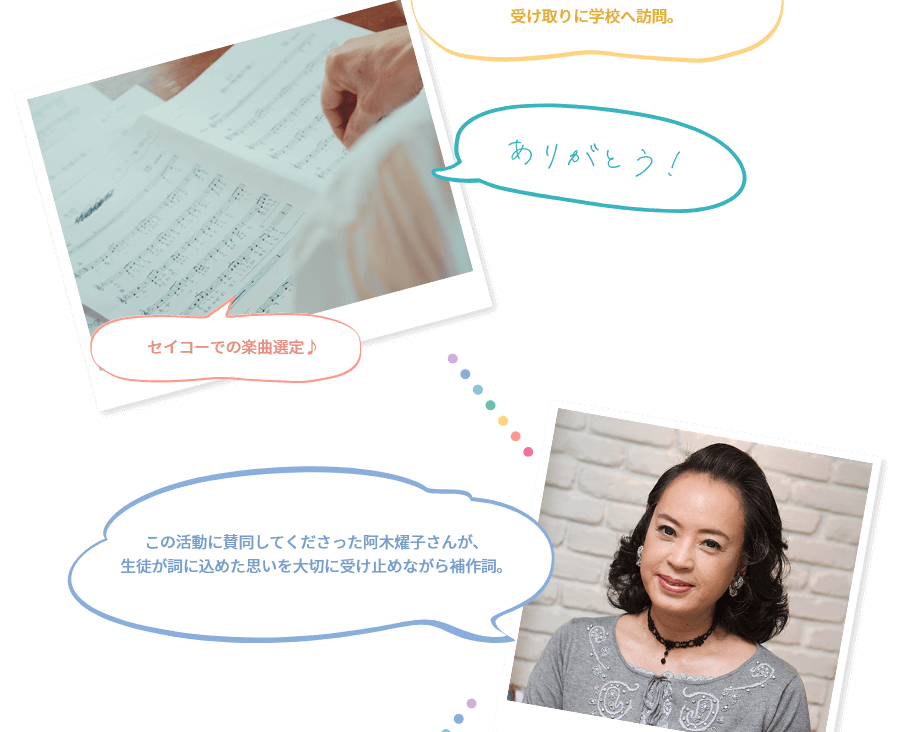 受け取りに学校へ訪問。
ありがとう！
セイコーでの楽曲選定♪
この活動に賛同してくださった阿木燿子さんが、
生徒が詞に込めた思いを大切に受け止めながら補作詞。